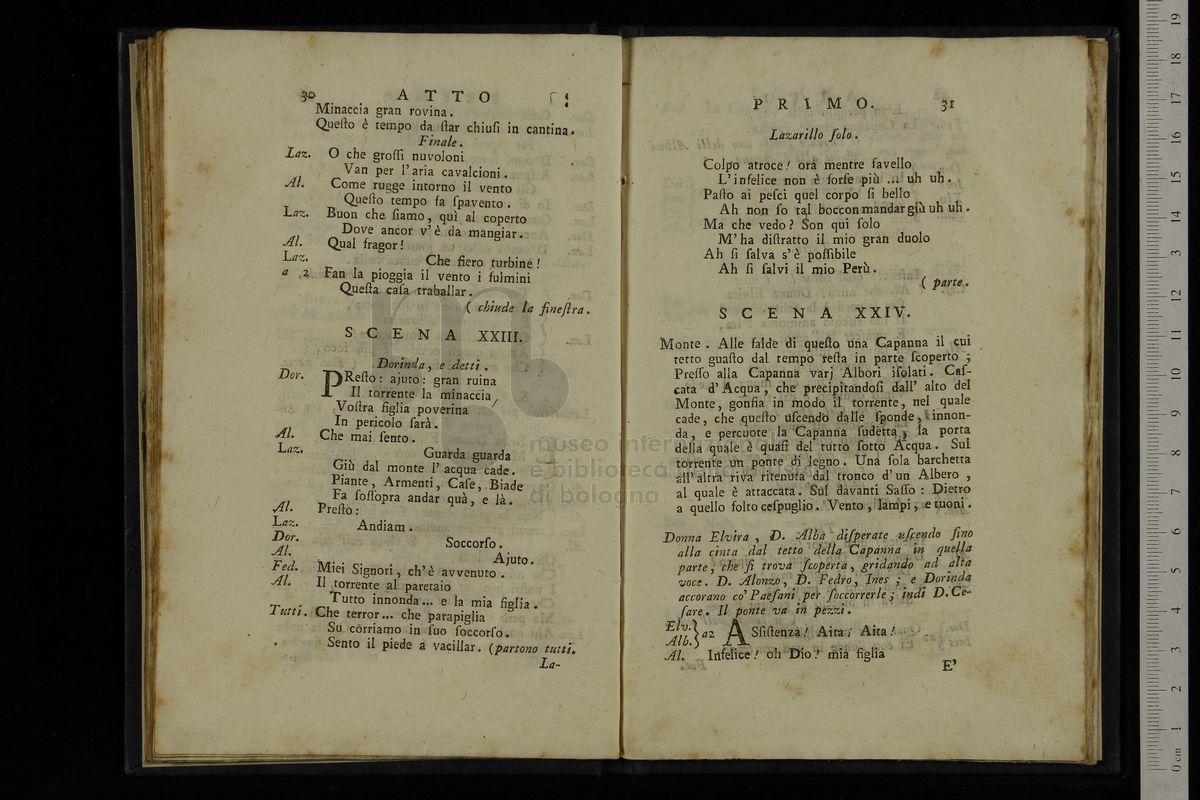 30 ATTO
Minaccia gran rovina.
Queſto è tempo da ſtar chiuſi in cantina.
Finale.
Laz. O che groſſi nuvoloni
Van per l'aria cavalcioni.
Al. Come rugge intorno il vento
Queſto tempo fa ſpavento.
Laz. Buon che ſiamo, quì al coperto
Dove ancor v'è da mangiar.
Al. Qual fragor!
Laz. Che fiero turbine!
a 2 Fan la pioggia il vento i fulmini
Queſta caſa traballar.
( chiude la fineſtra.
SCENA XXIII.
Dorinda, e detti.
Dor. PReſto: ajuto: gran ruina
Il torrente la minaccia,
Voſtra figlia poverina
In pericolo ſarà.
Al. Che mai ſento.
Laz. Guarda guarda
Giù dal monte l'acqua cade.
Piante, Armenti, Caſe, Biade
Fa ſoſſopra andar quà, e là.
Al. Preſto:
Laz. Andiam.
Dor. Soccorſo.
Al. Ajuto.
Fed. Miei Signori, ch'è avvenuto.
Al. Il torrente al paretaio
Tutto innonda... e la mia figlia.
Tutti. Che terror... che parapiglia
Su corriamo in ſuo ſoccorſo.
Sento il piede a vacillar. (partono tutti.
La-
PRIMO. 31
Lazarillo ſolo.
Colpo atroce! ora mentre favello
L'infelice non è forſe più ... uh uh.
Paſto ai peſci quel corpo ſi bello
Ah non ſo tal boccon mandar giù uh uh.
Ma che vedo? Son qui ſolo
M'ha diſtratto il mio gran duolo
Ah ſi ſalva s'è poſſibile
Ah ſi ſalvi il mio Perù.
( parte.
SCENA XXIV.
Monte. Alle falde di queſto una Capanna il cui
tetto guaſto dal tempo reſta in parte ſcoperto;
Preſſo alla Capanna varj Albori iſolati. Caſ-
cata d'Acqua, che precipitandoſi dall' alto del
Monte, gonfia in modo il torrente, nel quale
cade, che queſto uſcendo dalle ſponde, innon-
da, e percuote la Capanna ſudetta, la porta
della quale è quaſi del tutto ſotto Acqua. Sul
torrente un ponte di legno. Una ſola barchetta
all'altra riva ritenuta dal tronco d'un Albero,
al quale è attaccata. Sul davanti Saſſo: Dietro
a quello folto ceſpuglio. Vento, lampi, e tuoni.
Donna Elvira, D. Alba diſperate uſcendo fino
alla cinta dal tetto della Capanna in quella
parte, che ſi trova ſcoperta, gridando ad alta
voce. D. Alonzo, D. Fedro, Ines; e Dorinda
accorano co' Paeſani per ſoccorrerle; indi D. Ce-
ſare. Il ponte va in pezzi.
Elv. Alb. } a2 ASſiſtenza! Aita! Aita!
Al. Infelice! oh Dio! mia figlia
E'
museo internazionale
e biblioteca della musica
di bologna
0 cm 1 2 3 4 5 6 7 8 9 10 11 12 13 14 15 16 17 18 19